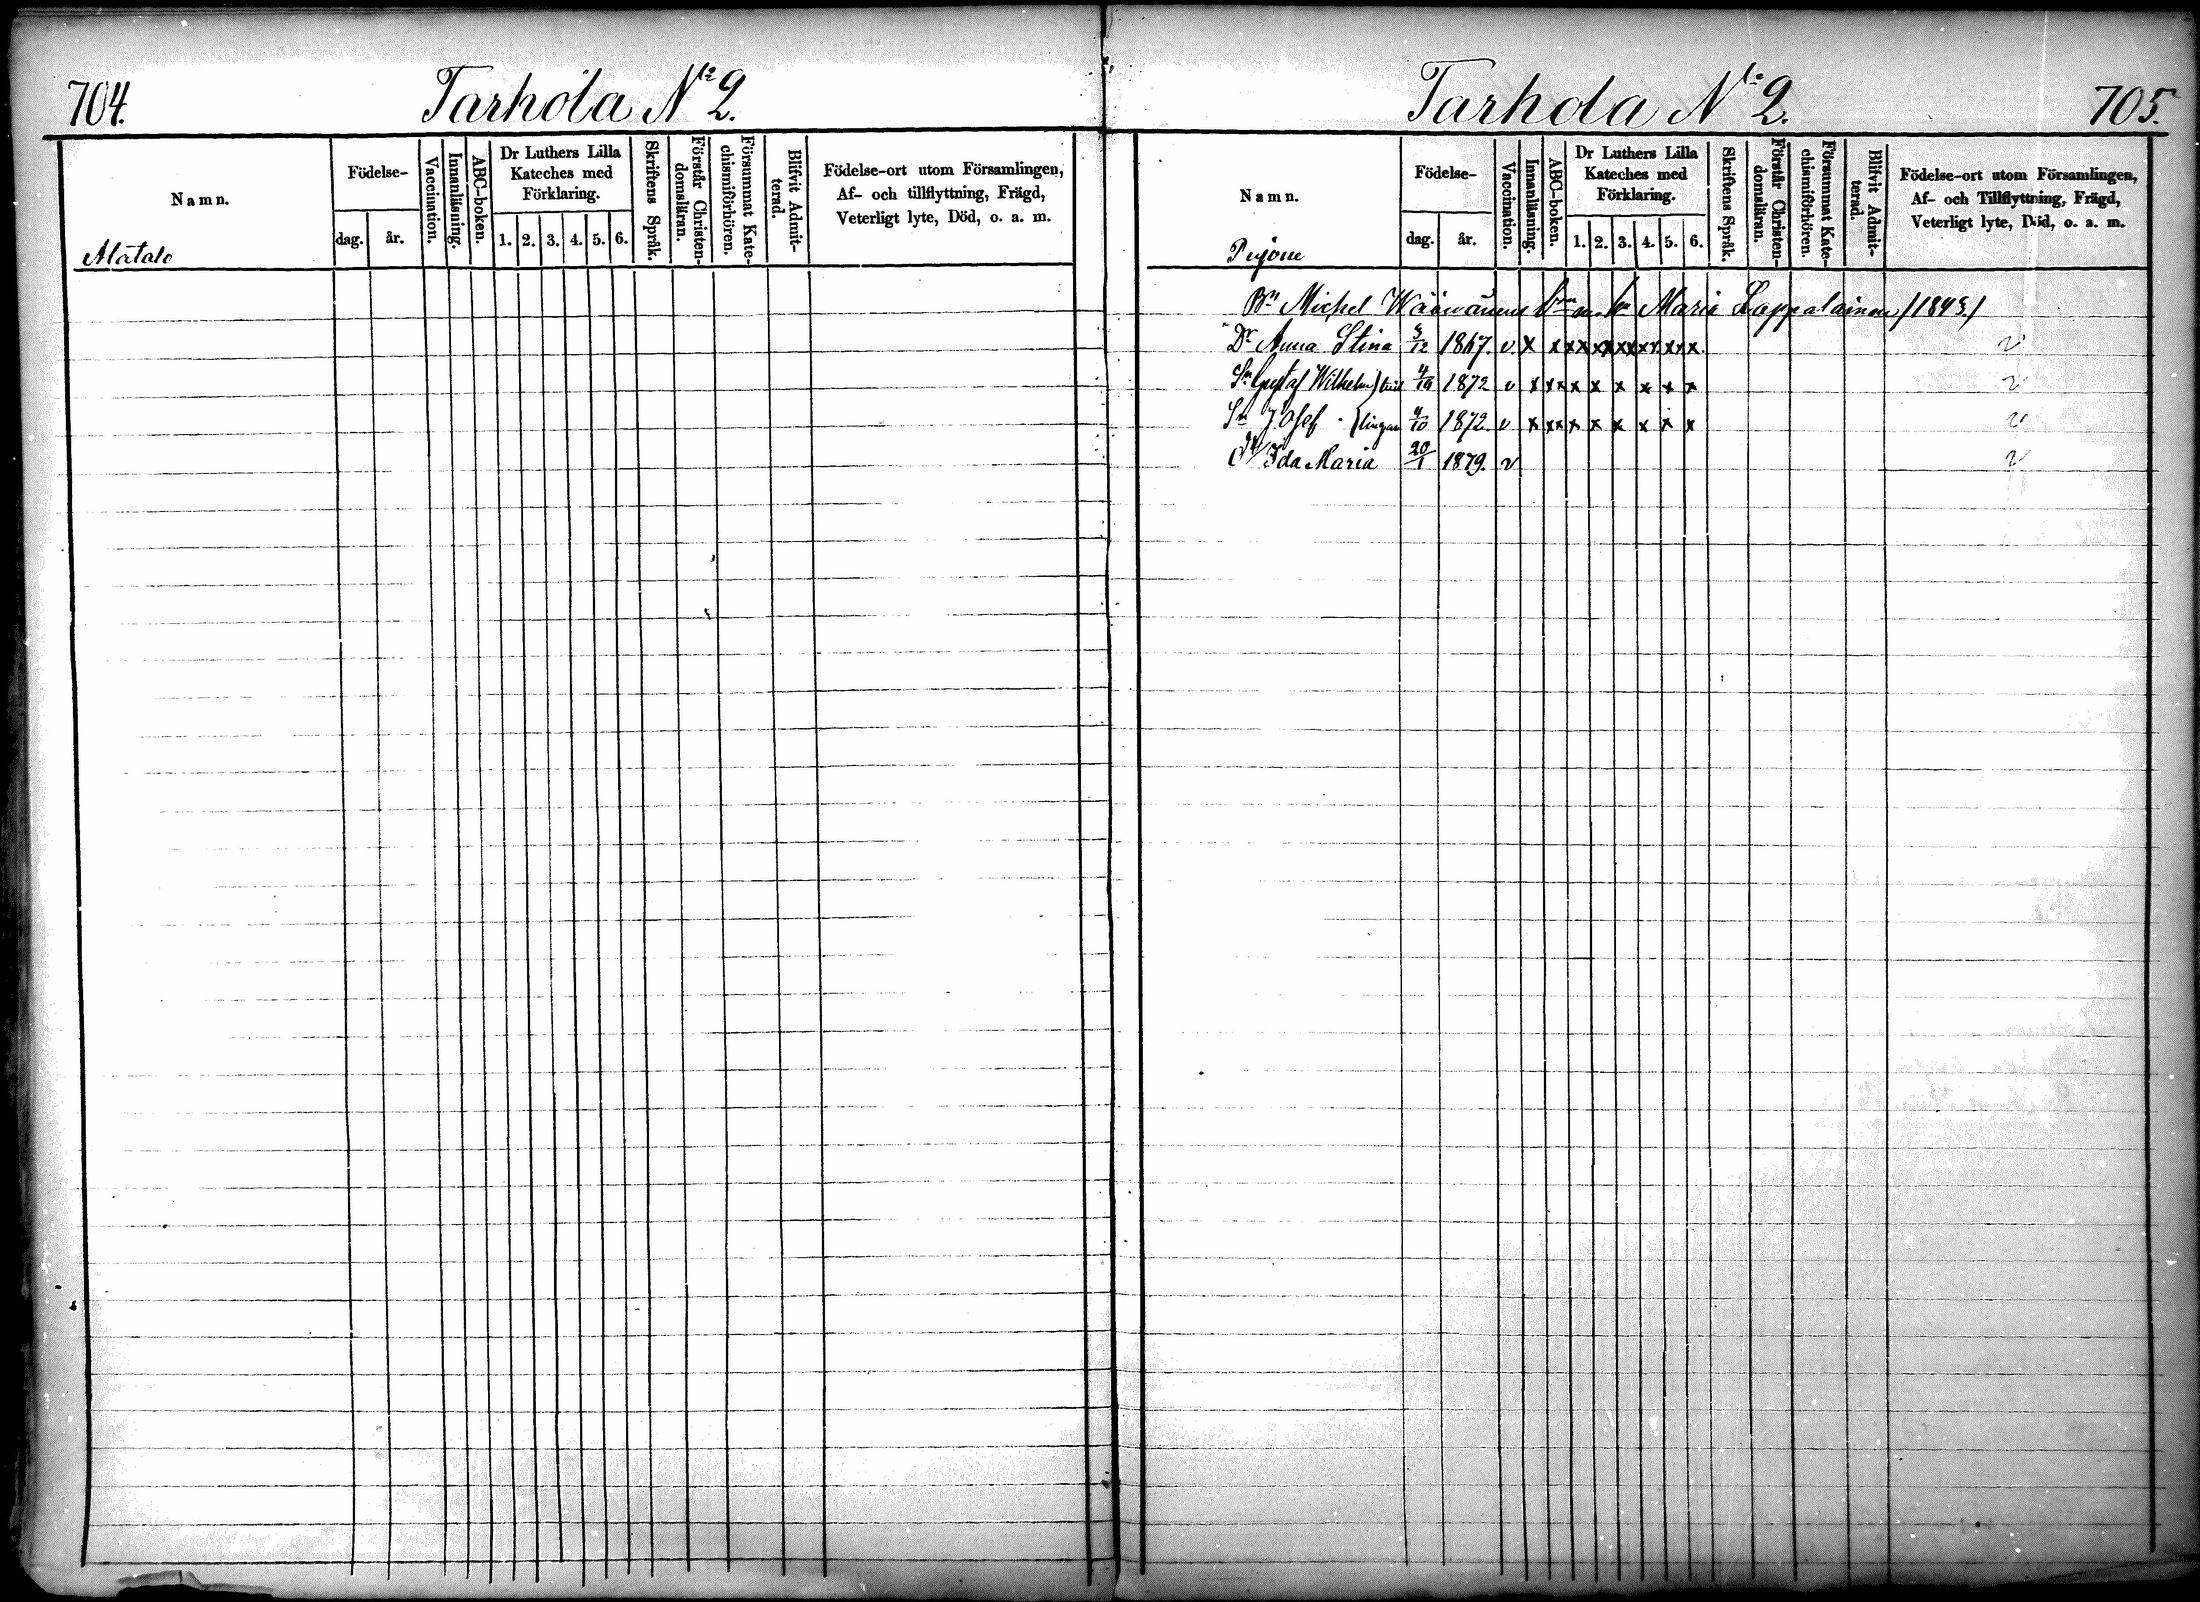 704.
Tarhola No 2.
Namn.
Födelse-
dag.
år.
Vaccination.
Innanläsning.
ABC-boken.
Dr Luthers Lilla
Kateches med
Förklaring.
1. 2. 3. 4. 5. 6.
Skriftens Språk.
Förstår Christen-
domsläran.
Försummat Kate-
chismiförhören.
Blifvit Admit-
terad.
Födelse-ort utom Församlingen,
Af- och tillflyttning, Frägd,
Veterligt lyte, Död, o. a. m.
Alatalo
Tarhola No 2.
705.
Namn.
Födelse-
dag.
år.
Vaccination.
Innanläsning.
ABC-boken.
Dr Luthers Lilla
Kateches med
Förklaring.
1. 2. 3. 4. 5. 6.
Skriftens Språk.
Förstår Christen-
domsläran.
Försummat Kate-
chismiförhören.
Blifvit Admit-
terad.
Födelse-ort utom Församlingen,
Af- och Tillflyttning, Frägd,
Veterligt lyte, Död, o. a. m.
Bn Michel Maria Lappalainen /1843/
Dr Anna Stina 3/12 1867. v. x x x x x x x x x x x x x v
Sn Gustaf Wilhelm 4/10 1872 v x x x x x x x x x v
Sn Josef 4/10 1872. v x x x x x x x x x v
Ida Maria 20/1 1879. v v